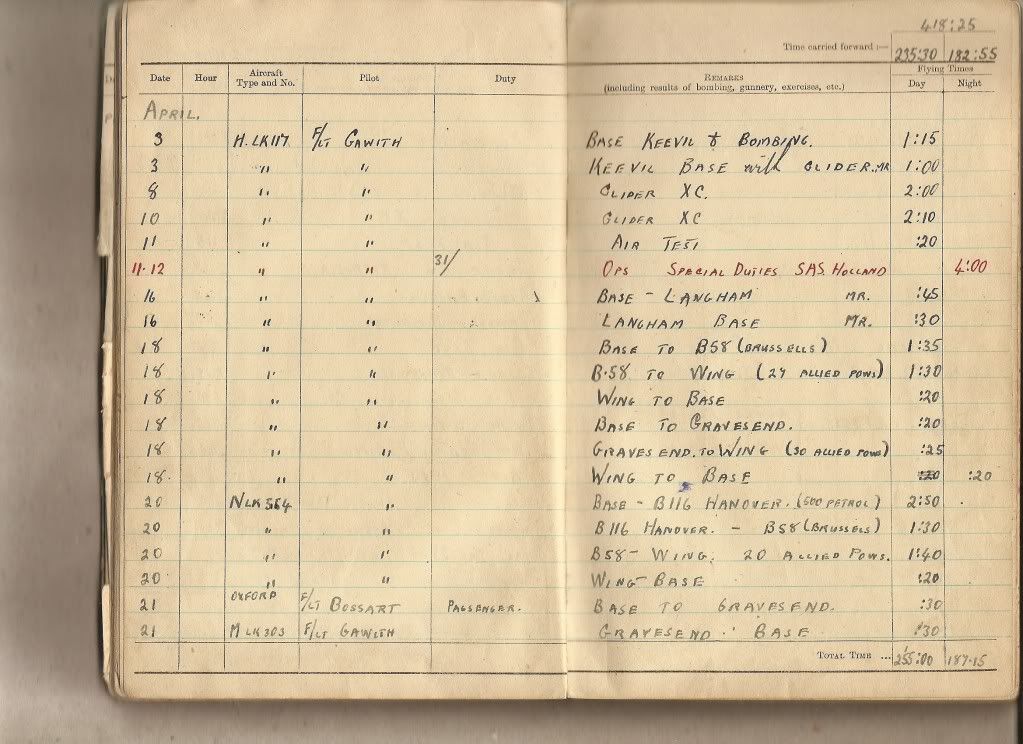 418:25
Time carried forward :— 235:30 182:55
Date Hour Aircraft Type and No. Pilot Duty REMARKS (including results of bombing, gunnery, exercises, etc.) Flying Times Day Night
APRIL.
3 H. LK117 F/LT GAWITH BASE KEEVIL & BOMBING. 1:15
3 " " KEEVIL BASE with GLIDER. MR 1:00
8 " " GLIDER XC. 2:00
10 " " GLIDER XC 2:10
11 " " AIR TEST :20
11-12 " " 31/ OPS SPECIAL DUTIES SAS. HOLLAND 4:00
16 " " BASE - LANGHAM MR. :45
16 " " LANGHAM BASE MR. :30
18 " " BASE TO B58 (BRUSSELLS) 1:35
18 " " B.58 TO WING (24 ALLIED POWS) 1:30
18 " " WING TO BASE :20
18 " " BASE TO GRAVESEND. :20
18 " " GRAVESEND. TO WING (30 ALLIED POWS) :25
18. " " WING TO BASE :20 :20
20 N LK554 " BASE - B116 HANOVER. (500 PETROL) 2:50
20 " " B116 HANOVER. - B58 (BRUSSELS) 1:30
20 " " B58 - WING. 20 ALLIED POWS. 1:40
20 " " WING - BASE :20
21 OXFORD F/LT BOSSART PASSENGER. BASE TO GRAVESEND. :30
21 M LK303 F/LT GAWITH GRAVESEND BASE :30
TOTAL TIME ... 255:00 187.15